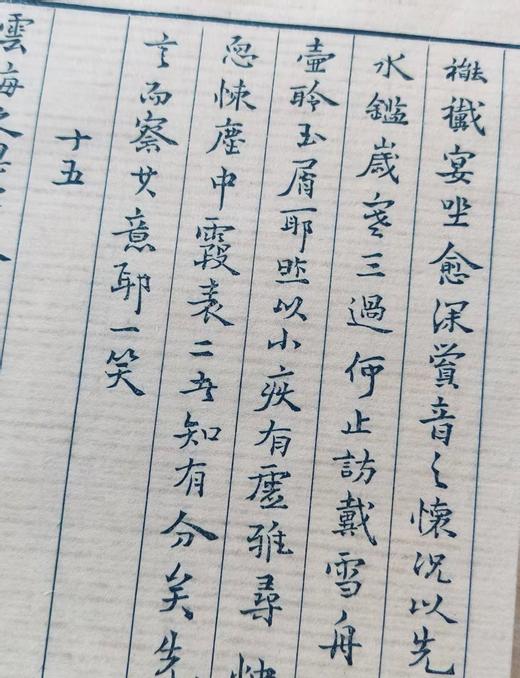 襶襳宴坐愈深賞音之懷况以先
水鑑歲寒三過何止訪戴雪舟
壺聆玉屑耶照以小疾有虛雅尋
忽悚塵中霞表二者知有分矣先
言而察其意耶一笑
十五
雲海之